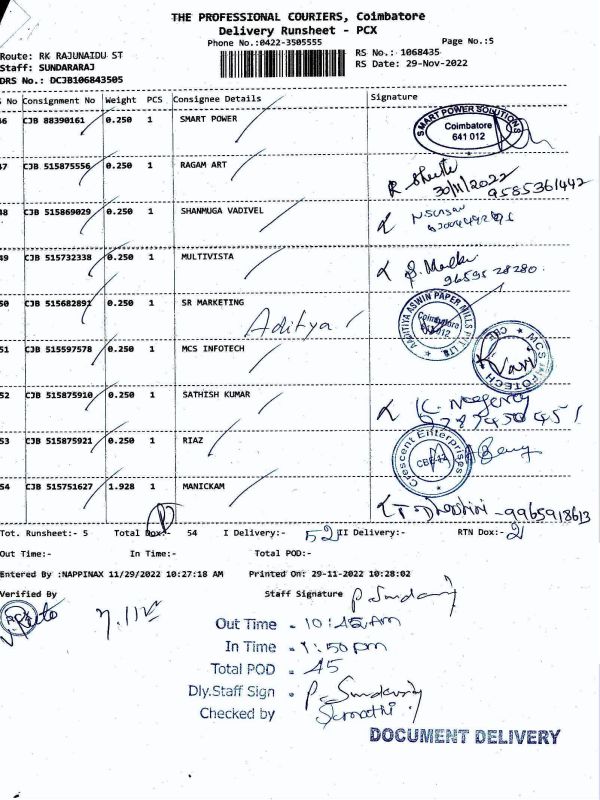 THE PROFESSIONAL COURIERS, Coimbatore
Delivery Runsheet - PCX
Phone No.:0422-3505555
Page No.:5
Route: RK RAJUNAIDU ST
RS No.: 1068435
Staff: SUNDARARAJ
RS Date: 29-Nov-2022
DRS No.: DCJB106843505
No Consignment No Weight PCS Consignee Details Signature
46 CJB 88390161 0.250 1 SMART POWER
SMART POWER SOLUTIONS
Coimbatore
641 012
47 CJB 515875556 0.250 1 RAGAM ART
30/11/2022
9585361442
48 CJB 515869029 0.250 1 SHANMUGA VADIVEL
49 CJB 515732338 0.250 1 MULTIVISTA
9659528280
50 CJB 515682891 0.250 1 SR MARKETING
Aditya
AADITIYA ASWIN PAPER MILLS PVT LTD
Coimbatore
641 012
51 CJB 515597578 0.250 1 MCS INFOTECH
MCS INFOTECH CBE
52 CJB 515875910 0.250 1 SATHISH KUMAR
53 CJB 515875921 0.250 1 RIAZ
Crescent Enterprises
CBE-12
54 CJB 515751627 1.928 1 MANICKAM
9965918613
Tot. Runsheet:- 5 Total Dox:- 54 I Delivery:- 52 II Delivery:- RTN Dox:- 2
Out Time:- In Time:- Total POD:-
Entered By :NAPPINAX 11/29/2022 10:27:18 AM Printed On: 29-11-2022 10:28:02
Verified By Staff Signature P. Sundararaj
Out Time - 10:45 Am
In Time - 1:50 pm
Total POD - 45
Dly.Staff Sign - P. Sundararaj
Checked by
DOCUMENT DELIVERY